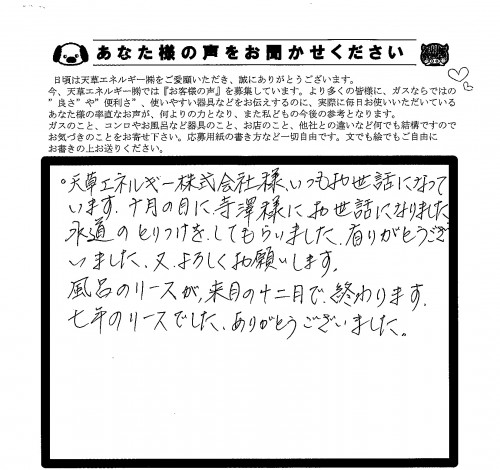 あなた様の声をお聞かせください
日頃は天草エネルギー㈱をご愛顧いただき、誠にありがとうございます。
今、天草エネルギー㈱では『お客様の声』を募集しています。より多くの皆様に、ガスならではの
”良さ”や”便利さ”、使いやすい器具などをお伝えするのに、実際に毎日お使いいただいている
あなた様の率直なお声が、何よりの力となり、また私どもの今後の参考となります。
ガスのこと、コンロやお風呂など器具のこと、お店のこと、他社との違いなど何でも結構ですので
お気づきのことをお寄せ下さい。応募用紙の書き方など一切自由です。文でも絵でもご自由に
お書きの上お送りください。
。天草エネルギー株式会社様、いつもお世話になって
います、十月の日に、寺澤様にお世話になりました
水道のとりつけを、してもらいました、有りがとうござ
いました、又、よろしくお願いします。
風呂のリースが、来月の十二月で、終わります。
七年のリースでした、ありがとうございました。